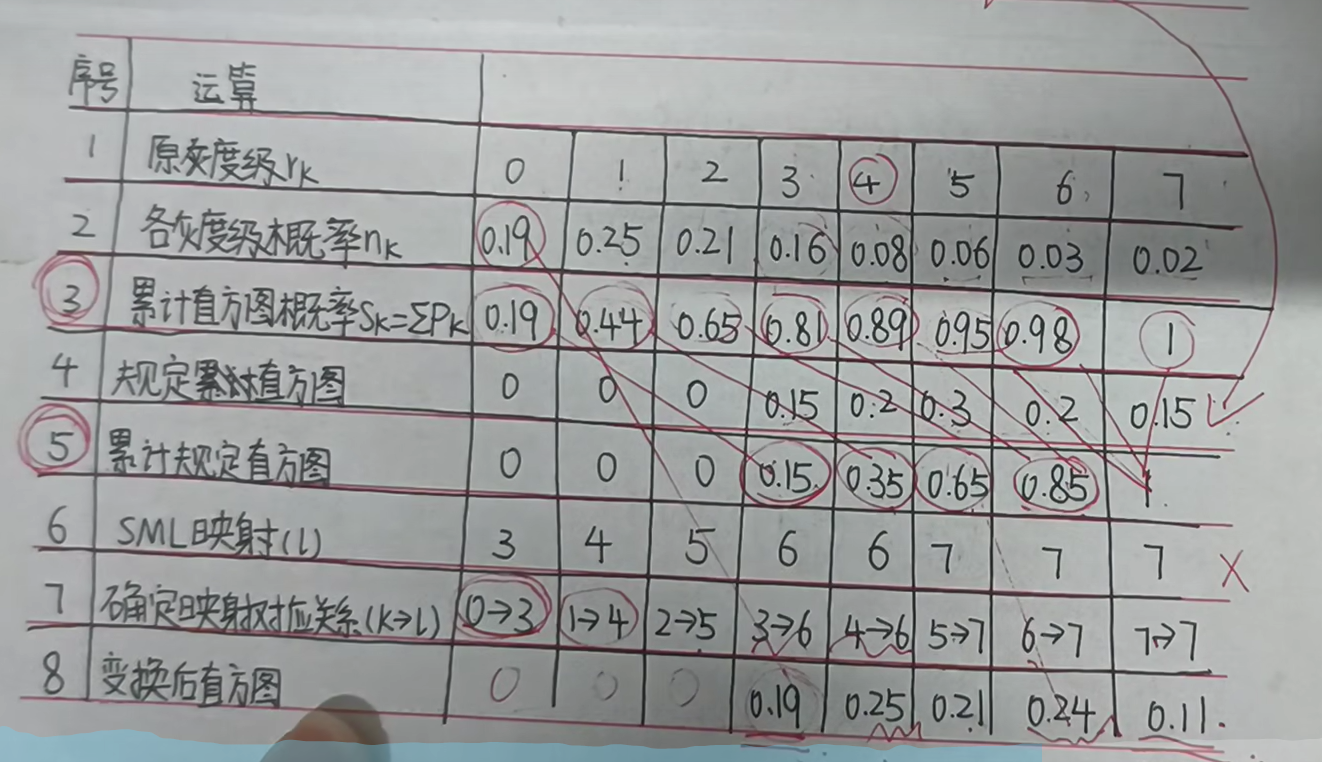 序号 运算
1 原灰度级rk 0 1 2 3 4 5 6 7
2 各灰度级概率nk 0.19 0.25 0.21 0.16 0.08 0.06 0.03 0.02
3 累计直方图概率Sk=ΣPk 0.19 0.44 0.65 0.81 0.89 0.95 0.98 1
4 规定直方图 0 0 0 0.15 0.2 0.3 0.2 0.15
5 累计规定直方图 0 0 0 0.15 0.35 0.65 0.85 1
6 SML映射(l) 3 4 5 6 6 7 7 7
7 确定映射对应关系(k→l) 0→3 1→4 2→5 3→6 4→6 5→7 6→7 7→7
8 变换后直方图 0 0 0 0.19 0.25 0.21 0.24 0.11